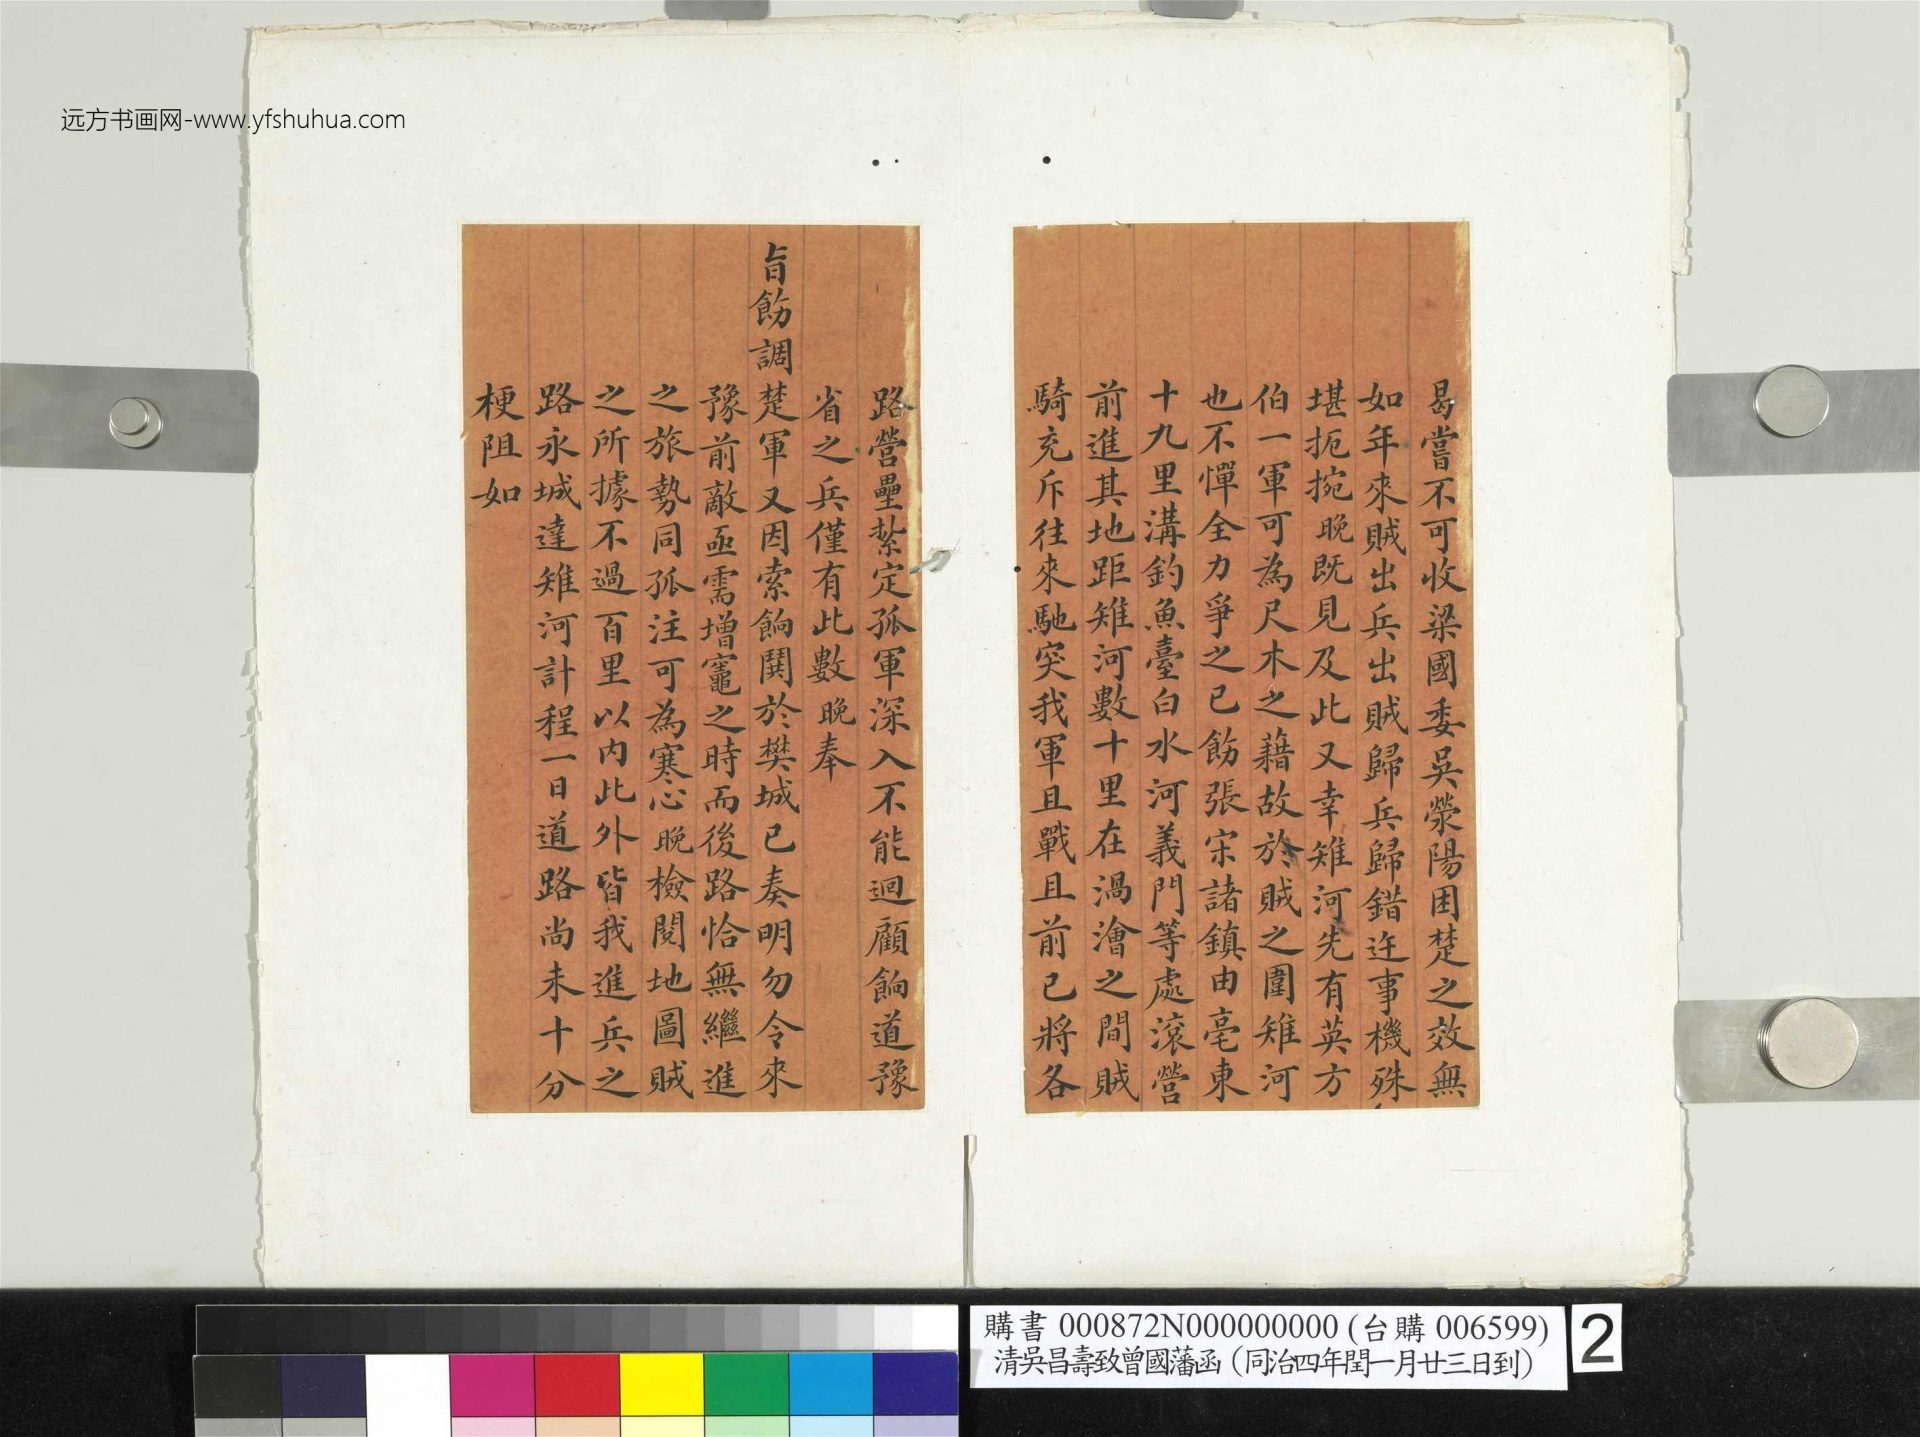 远方书画网-www.yfshuhua.com
曷嘗不可收梁國委吳滎陽困楚之效無
如年來賊出兵出賊歸兵歸錯迕事機殊
堪扼捥晚既見及此又幸雉河先有英方
伯一軍可為尺木之藉故於賊之圍雉河
也不憚全力爭之已飭張宋諸鎮由亳東
十九里溝釣魚臺白水河義門等處滾營
前進其地距雉河數十里在渦澮之間賊
騎充斥往來馳突我軍且戰且前已將各
路營壘紮定孤軍深入不能迴顧餉道豫
省之兵僅有此數晚奉
旨飭調楚軍又因索餉鬨於樊城已奏明勿令來
豫前敵亟需增竈之時而後路恰無繼進
之旅勢同孤注可為寒心晚檢閱地圖賊
之所據不過百里以內此外皆我進兵之
路永城達雉河計程一日道路尚未十分
梗阻如
購書 000872N000000000 (台購 006599)
清吳昌壽致曾國藩函 (同治四年閏一月廿三日到)
2